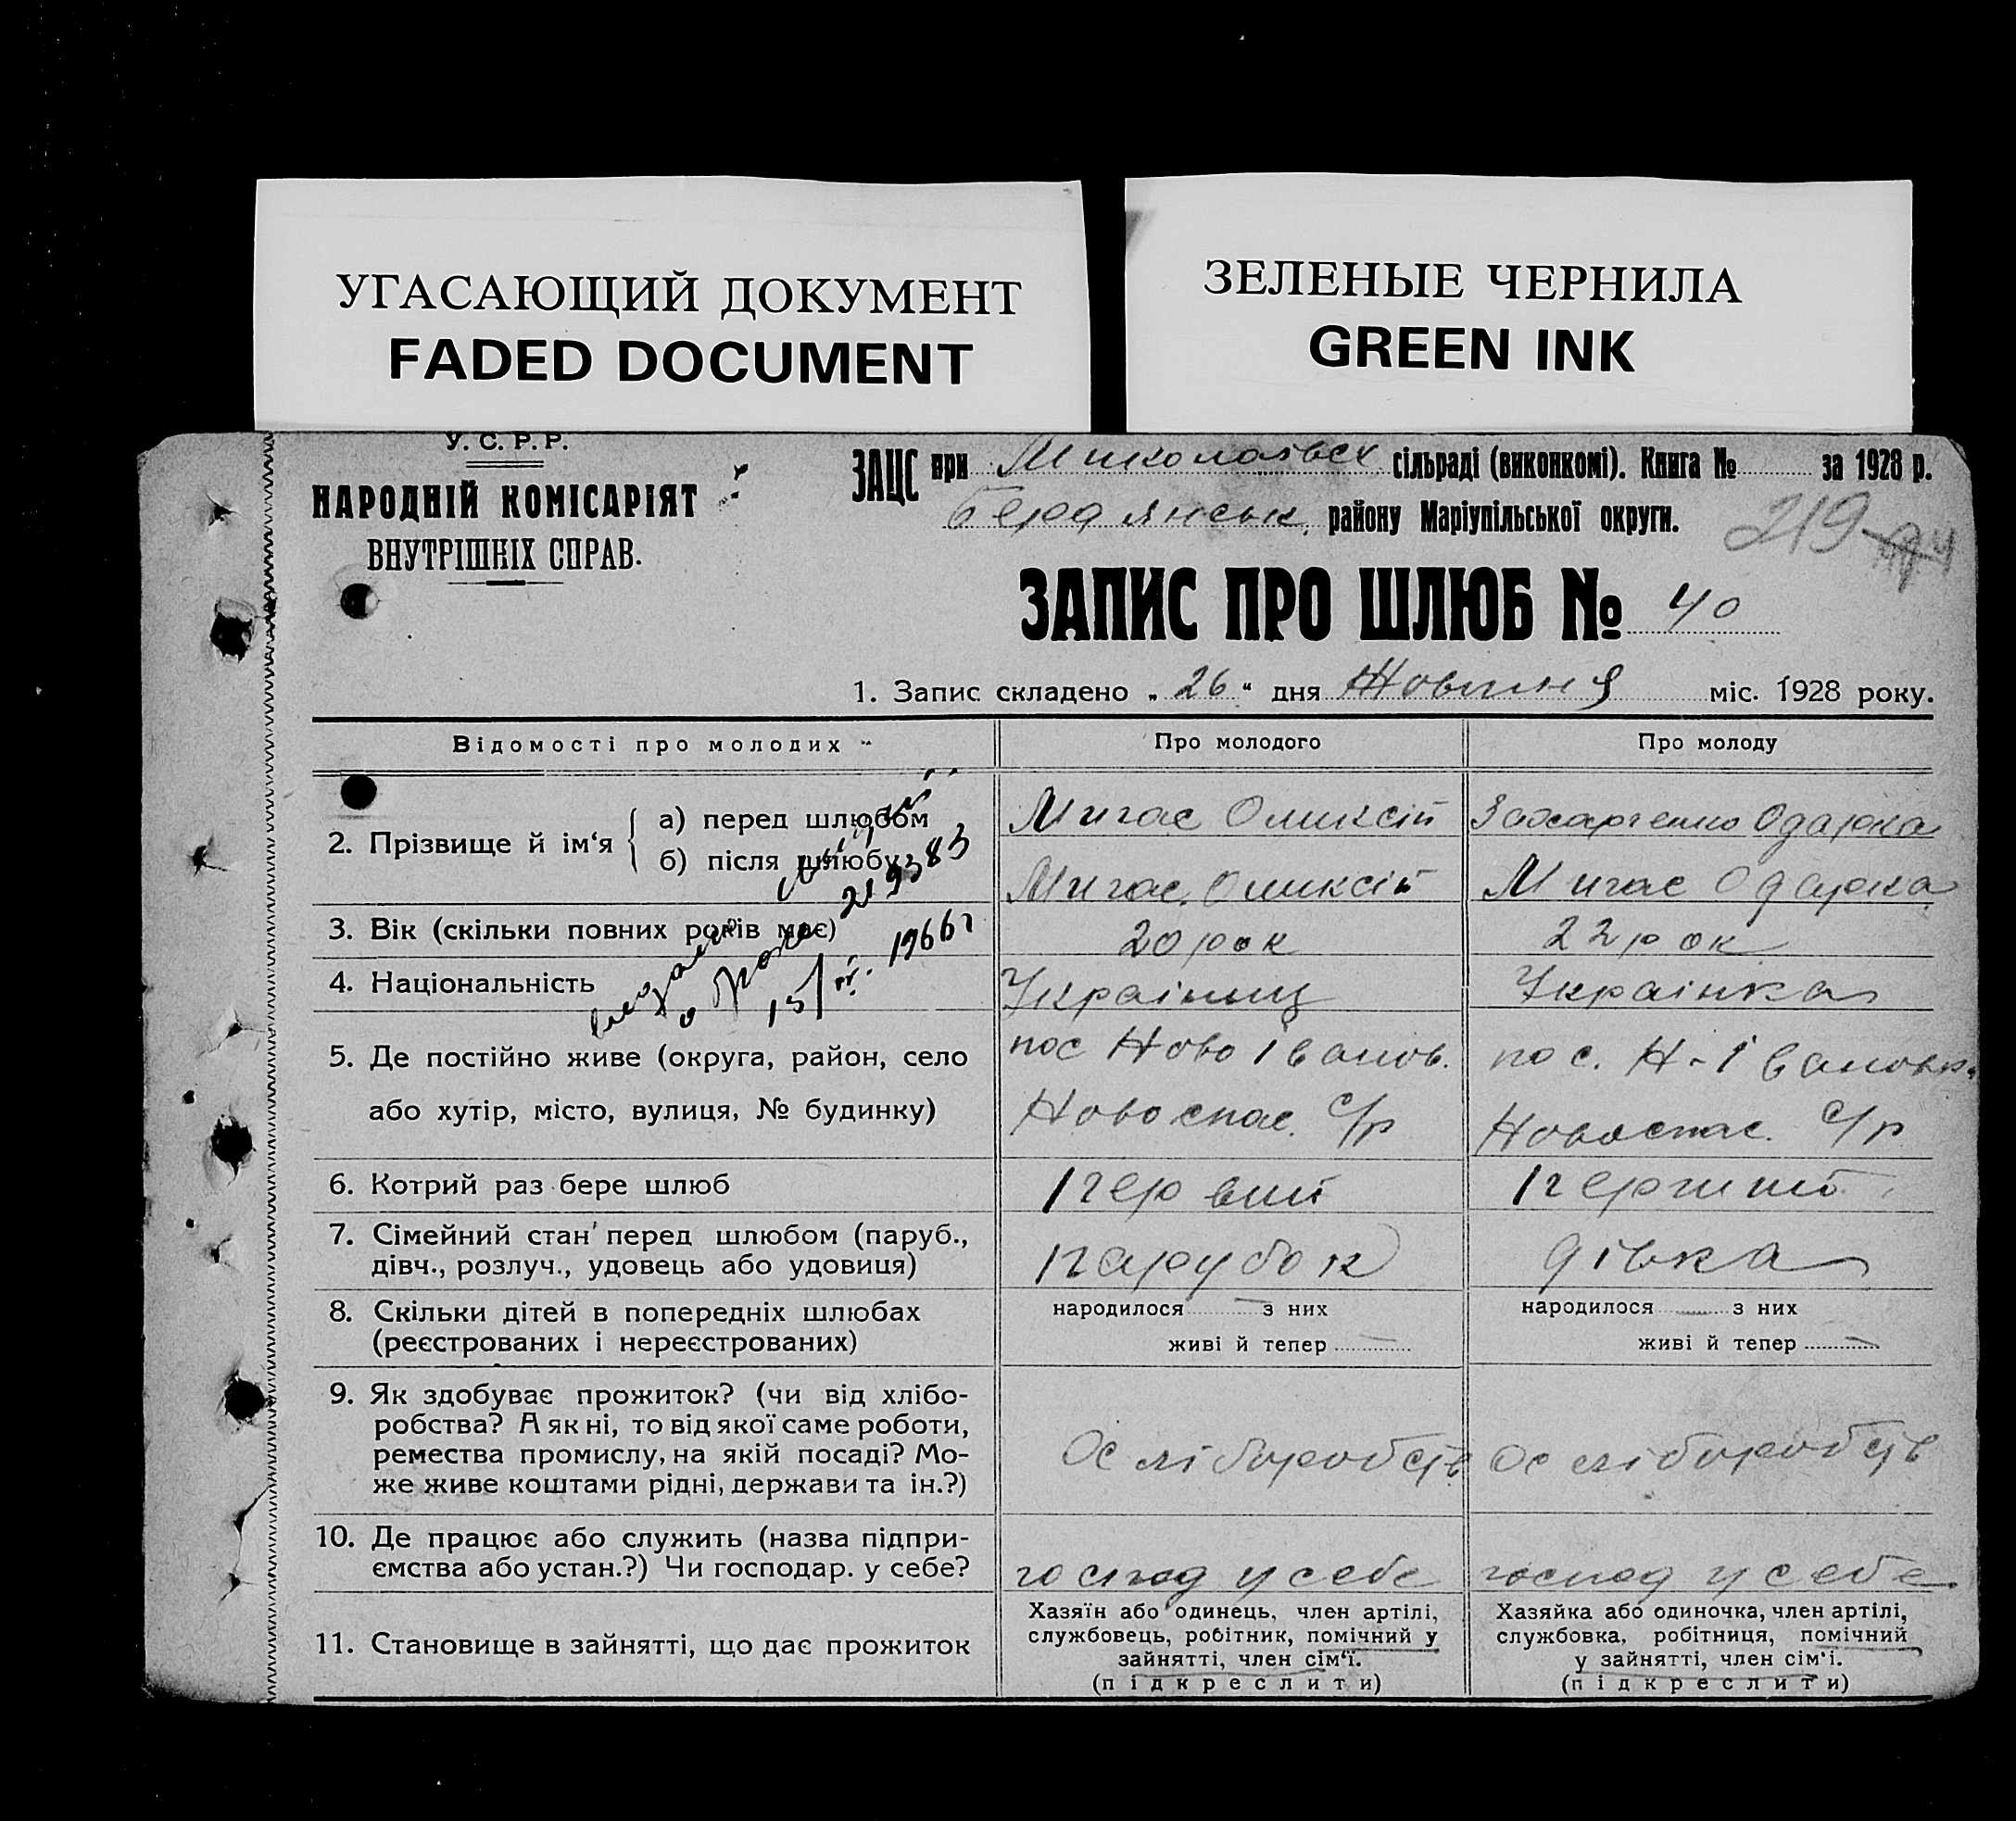 УГАСАЮЩИЙ ДОКУМЕНТ
FADED DOCUMENT
ЗЕЛЕНЫЕ ЧЕРНИЛА
GREEN INK
У. С. Р. Р.
НАРОДНІЙ КОМІСАРІЯТ
ВНУТРІШНІХ СПРАВ.
ЗАЦС при Миколаївск сільраді (виконкомі). Книга № за 1928 р.
Бердянськ. району Маріупільської округи.
219
ЗАПИС ПРО ШЛЮБ № 40
1. Запис складено „ 26 “ дня Жовтня міс. 1928 року.
Відомості про молодих
Про молодого
Про молоду
2. Прізвище й ім‘я
а) перед шлюбом
Мигас Оликсій
Захарченко Одарка
б) після шлюбу
Мигас Оликсій
Мигас Одарка
3. Вік (скільки повних років має)
20 рок
22 рок
о браке 15 1966 г
4. Національність
Українец
Українка
5. Де постійно живе (округа, район, село
або хутір, місто, вулиця, № будинку)
пос Ново Іванов.
Новоспас. С/р
пос. Н-Івановк.
Новоспас. С/р
6. Котрий раз бере шлюб
первий
7. Сімейний стан перед шлюбом (паруб.,
дівч., розлуч., удовець або удовиця)
парубок
дівка
8. Скільки дітей в попередніх шлюбах
(реєстрованих і нереєстрованих)
народилося з них
живі й тепер
народилося з них
живі й тепер
9. Як здобуває прожиток? (чи від хлібо-
робства? А як ні, то від якої саме роботи,
ремества промислу, на якій посаді? Мо-
же живе коштами рідні, держави та ін.?)
Хліборобств
Хліборобств
10. Де працює або служить (назва підпри-
ємства або устан.?) Чи господар. у себе?
господ у себе
господ у себе
11. Становище в зайнятті, що дає прожиток
Хазяїн або одинець, член артілі,
службовець, робітник, помічний у
зайнятті, член сім‘ї.
(підкреслити)
Хазяйка або одиночка, член артілі,
службовка, робітниця, помічний
у зайнятті, член сім‘і.
(підкреслити)